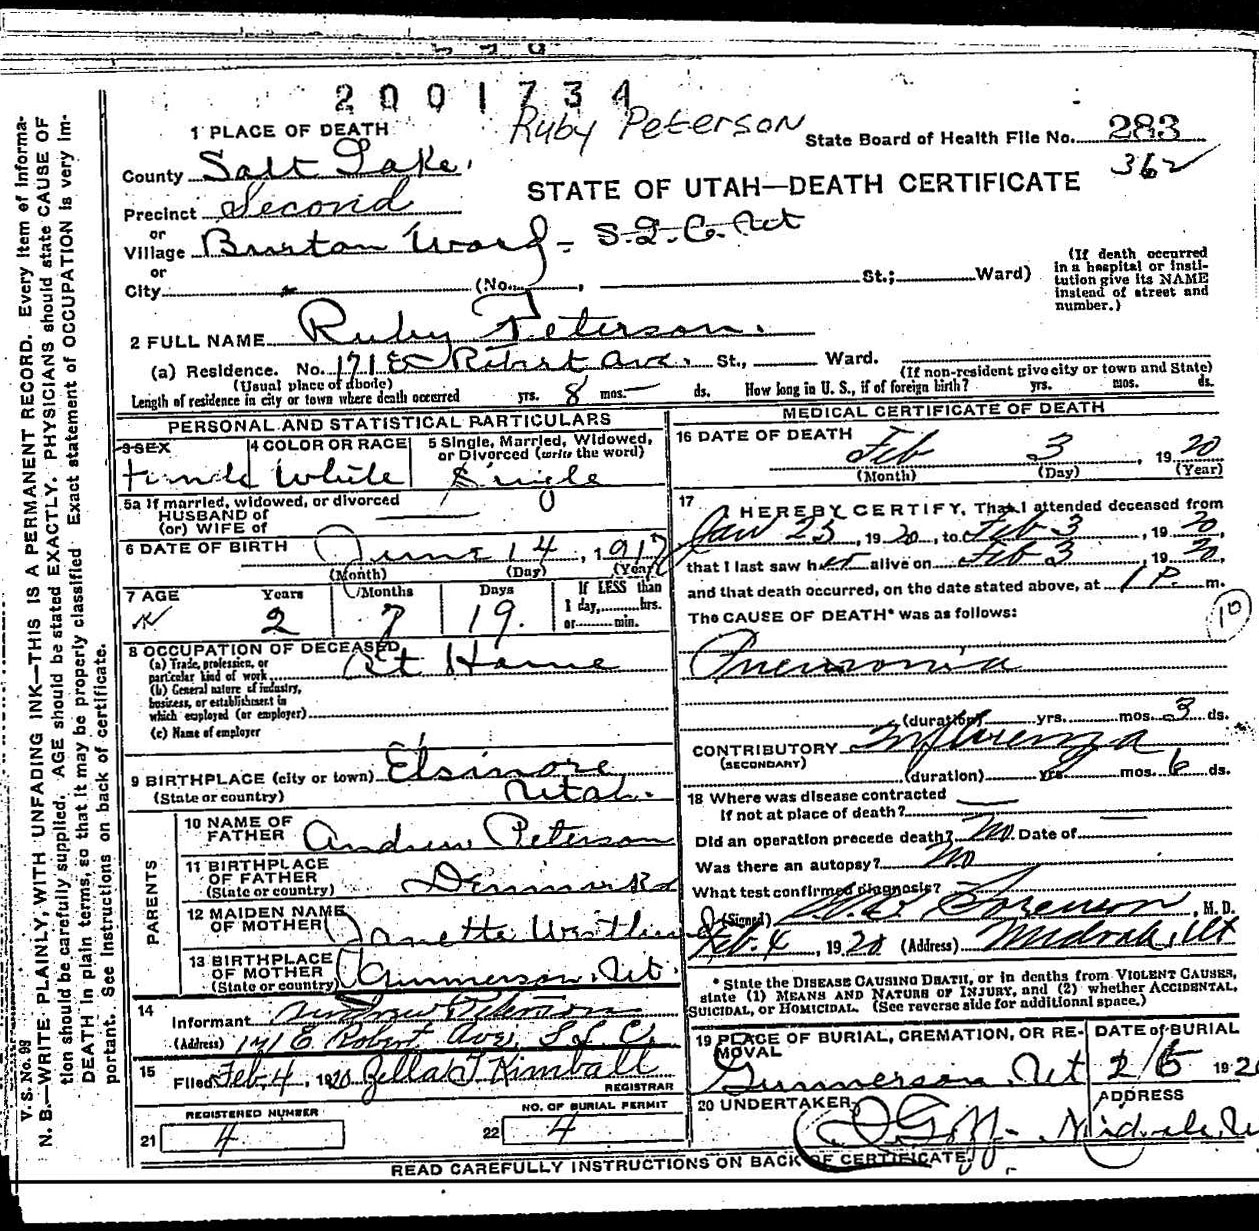 2001734
Ruby Peterson
State Board of Health File No. 283
362
1 PLACE OF DEATH
County Salt Lake.
STATE OF UTAH—DEATH CERTIFICATE
Precinct Second
or
Village Burton Ward - S.L.C. Ut
or
City (No. , St.; Ward)
(If death occurred in a hospital or institution give its NAME instead of street and number.)
2 FULL NAME Ruby Peterson.
(a) Residence. No. 171 E Robert Ave. St., Ward.
(Usual place of abode) (If non-resident give city or town and State)
Length of residence in city or town where death occurred yrs. 8 mos. — ds. How long in U. S., if of foreign birth? yrs. mos. ds.
PERSONAL AND STATISTICAL PARTICULARS
3 SEX 4 COLOR OR RACE 5 Single, Married, Widowed, or Divorced (write the word)
Female White Single
5a If married, widowed, or divorced
HUSBAND of
(or) WIFE of
6 DATE OF BIRTH June 14, 1917
(Month) (Day) (Year)
7 AGE Years Months Days If LESS than
1 day, hrs.
or min.
2 7 19.
8 OCCUPATION OF DECEASED
(a) Trade, profession, or particular kind of work At Home
(b) General nature of industry, business, or establishment in which employed (or employer)
(c) Name of employer
9 BIRTHPLACE (city or town) Elsinore,
(State or country) Utah.
PARENTS
10 NAME OF FATHER Andrew Peterson
11 BIRTHPLACE OF FATHER (State or country) Denmark
12 MAIDEN NAME OF MOTHER Janette
13 BIRTHPLACE OF MOTHER (State or country) Gunnerson, Ut.
14 Informant Andrew Peterson
(Address) 171 E Robert Ave, S L C.
15 Filed Feb. 4, 1920 Zella T Kimball
REGISTRAR
REGISTERED NUMBER NO. OF BURIAL PERMIT
21 4 22 4
MEDICAL CERTIFICATE OF DEATH
16 DATE OF DEATH Feb 3, 1920
(Month) (Day) (Year)
17 I HEREBY CERTIFY, That I attended deceased from
Jan 25, 1920, to Feb 3, 1920,
that I last saw her alive on Feb 3, 1920,
and that death occurred, on the date stated above, at 1 P. m.
The CAUSE OF DEATH* was as follows:
10
Pneumonia
(duration) yrs. mos. 3 ds.
CONTRIBUTORY Influenza
(SECONDARY)
(duration) yrs. mos. 6 ds.
18 Where was disease contracted
If not at place of death?
Did an operation precede death? No. Date of
Was there an autopsy? No
What test confirmed diagnosis?
(Signed) Sorenson, M.D.
Feb. 4, 1920 (Address) Midvale, Ut
* State the DISEASE CAUSING DEATH, or in deaths from VIOLENT CAUSES, state (1) MEANS AND NATURE OF INJURY, and (2) whether ACCIDENTAL, SUICIDAL, or HOMICIDAL. (See reverse side for additional space.)
19 PLACE OF BURIAL, CREMATION, OR REMOVAL DATE of BURIAL
Gunnerson, Ut 2/5 1920
20 UNDERTAKER ADDRESS
Goff - Midvale, U
READ CAREFULLY INSTRUCTIONS ON BACK OF CERTIFICATE.
V. S. No. 98
N. B.—WRITE PLAINLY, WITH UNFADING INK—THIS IS A PERMANENT RECORD. Every item of information should be carefully supplied. AGE should be stated EXACTLY. PHYSICIANS should state CAUSE OF DEATH in plain terms, so that it may be properly classified. Exact statement of OCCUPATION is very important. See instructions on back of certificate.